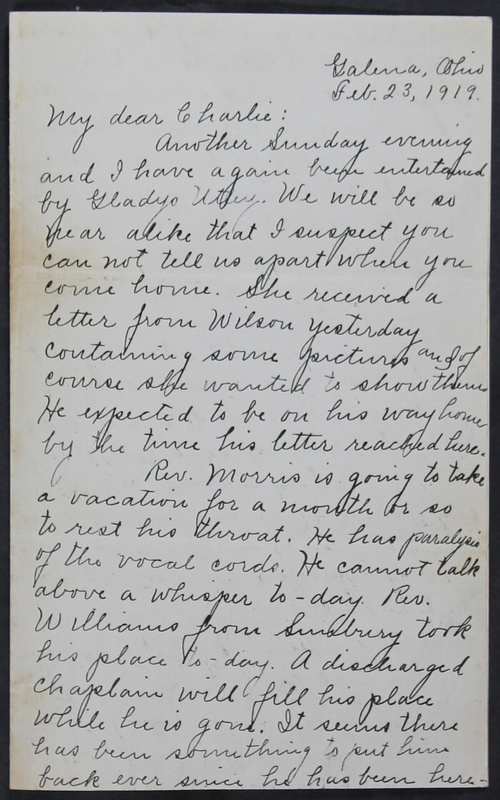 Galena, Ohio
Feb. 23, 1919.
My dear Charlie:
Another Sunday evening
and I have again been entertained
by Gladys Utley. We will be so
near alike that I suspect you
can not tell us apart when you
come home. She received a
letter from Wilson yesterday
containing some pictures and of
course she wanted to show them.
He expected to be on his way home
by the time his letter reached here.
Rev. Morris is going to take
a vacation for a month or so
to rest his throat. He has paralysis
of the vocal cords. He cannot talk
above a whisper to-day. Rev.
Williams from Sunbury took
his place to-day. A discharged
chaplain will fill his place
while he is gone. It seems there
has been something to put him
back ever since he has been here-